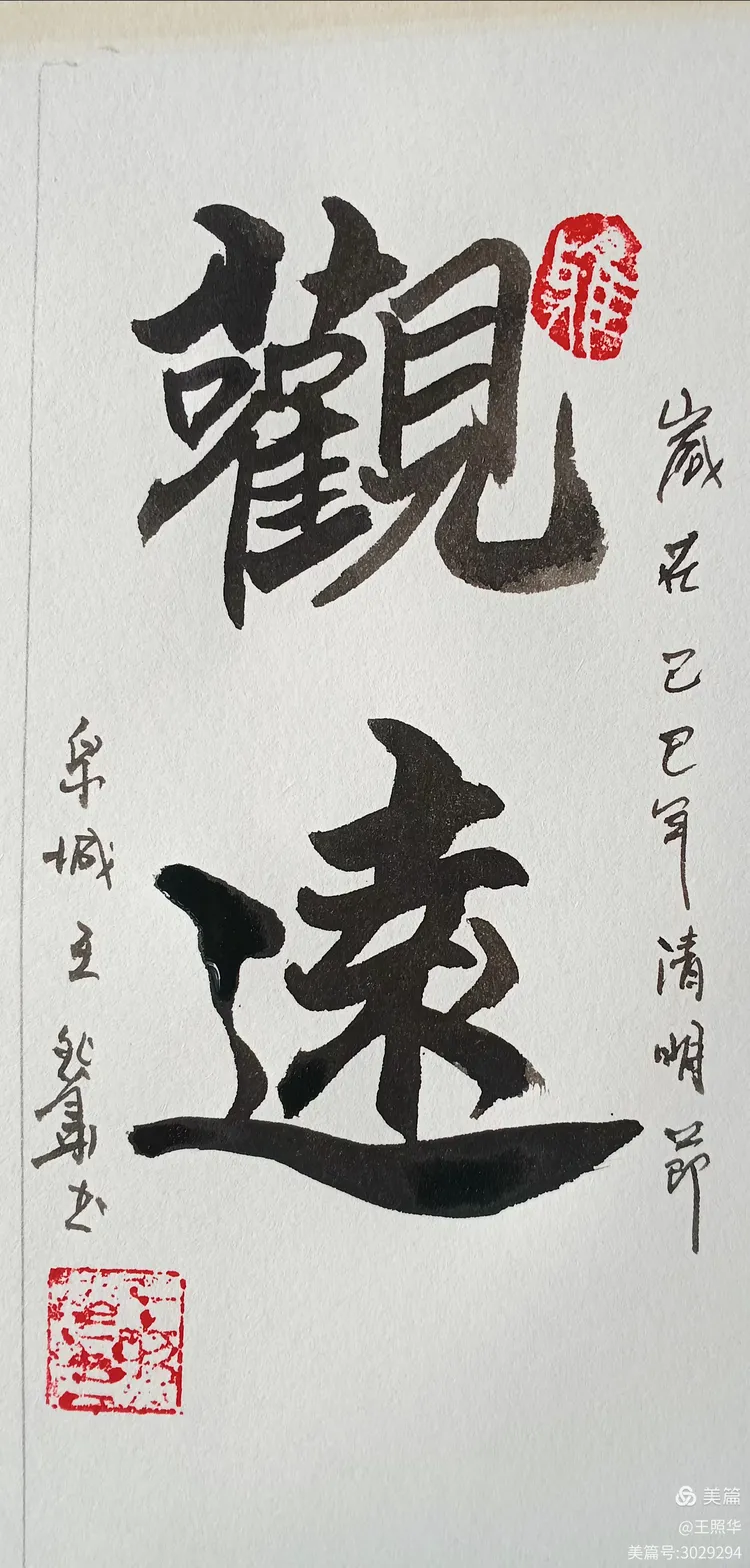 觀遠
歲在乙巳年清明節
泉城王照華書
雅
美篇
@王照华
美篇号:3029294